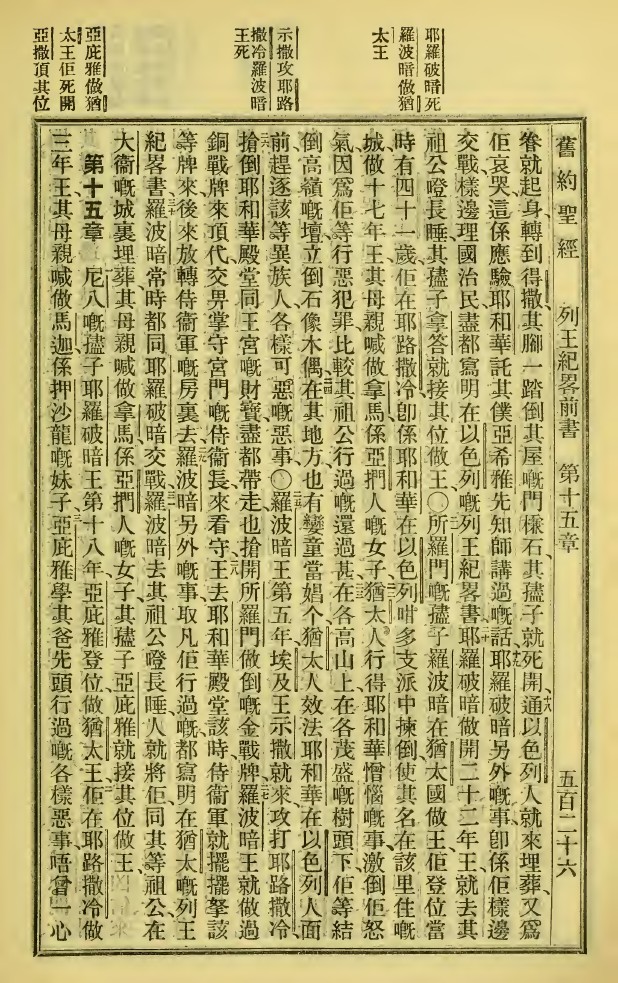 耶羅破暗死
羅波暗做猶
太王
示撒攻耶路
撒冷羅波暗
王死
亞庇雅做猶
太王佢死開
亞撒頂其位
舊約聖經 列王紀畧前書 第十五章 五百二十六
眷就起身轉到得撒其腳一踏倒其屋嘅門檻石其𡥧子就死開十八通以色列人就來埋葬又爲
佢哀哭這係應驗耶和華託其僕亞希雅先知師講過嘅話十九耶羅破暗另外嘅事卽係佢樣邊
交戰樣邊理國治民盡都寫明在以色列嘅列王紀畧書二十耶羅破暗做開二十二年王就去其
祖公嶝長睡其𡥧子拿答就接其位做王〇二一所羅門嘅𡥧子羅波暗在猶太國做王佢登位當
時有四十一歲佢在耶路撒冷卽係耶和華在以色列咁多支派中揀倒使其名在該里住嘅
城做十七年王其母親喊做拿馬係亞捫人嘅女子二二猶太人行得耶和華憎惱嘅事激倒佢怒
氣因爲佢等行惡犯罪比較其祖公行過嘅還過甚二三在各高山上在各茂盛嘅樹頭下佢等結
倒高嶺嘅壇立倒石像木偶二四在其地方也有孌童當娼个猶太人效法耶和華在以色列人面
前趕逐該等異族人各樣可惡嘅惡事〇二五羅波暗王第五年埃及王示撒就來攻打耶路撒冷
二六搶倒耶和華殿堂同王宮嘅財寶盡都帶走也搶開所羅門做倒嘅金戰牌二七羅波暗王就做過
銅戰牌來頂代交畀掌守宮門嘅侍衞長來看守二八王去耶和華殿堂該時侍衞軍就擺擺拏該
等牌來後來放轉侍衞軍嘅房裏去二九羅波暗另外嘅事取凡佢行過嘅都寫明在猶太嘅列王
紀畧書三十羅波暗常時都同耶羅破暗交戰三一羅波暗去其祖公嶝長睡人就將佢同其等祖公在
大衞嘅城裏埋葬其母親喊做拿馬係亞捫人嘅女子其𡥧子亞庇雅就接其位做王
第十五章 尼八嘅𡥧子耶羅破暗王第十八年亞庇雅登位做猶太王二佢在耶路撒冷做
三年王其母親喊做馬迦係押沙龍嘅妹子三亞庇雅學其爸先頭行過嘅各樣惡事唔曾一心